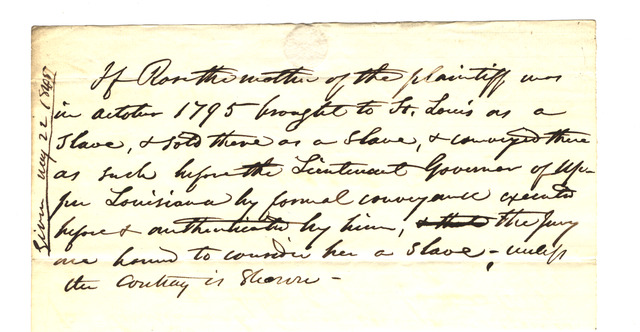 Given May 22 1848
If Rose the mother of the plaintiff was
in octoter 1795 brought to St. Louis as a
Slave, & sold there as a Slave, & conveyed there
as such before the Lieutenant Governor of Up-
per Louisiana by formal conveyance executed
before & authenticated by him, & that the Jury
are bound to consider her a Slave, unless
the Contrary is Shown -